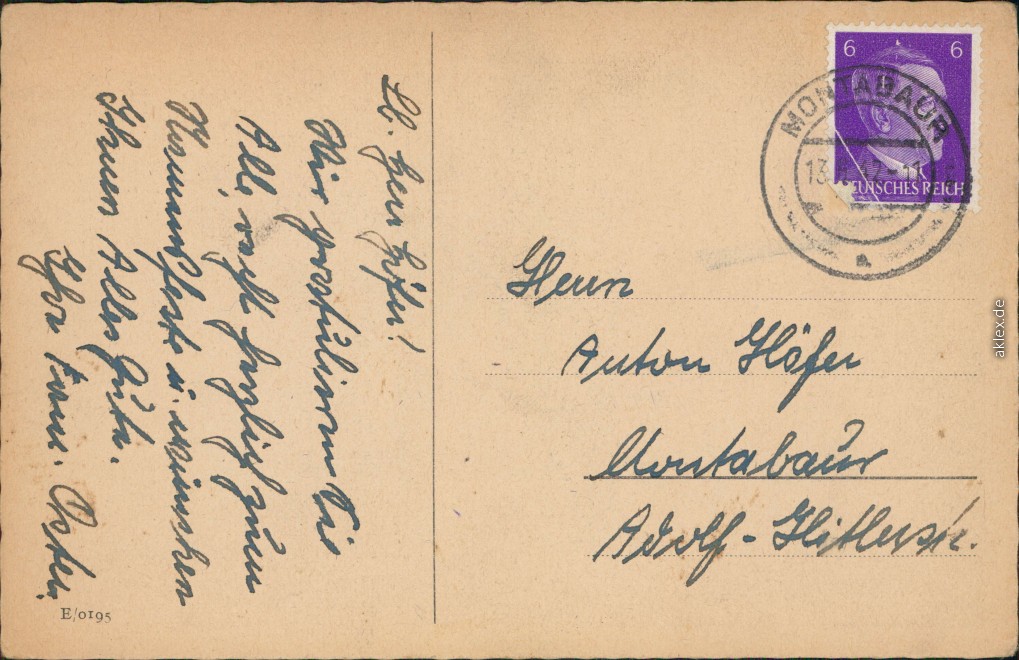 Lb. Herr Höfer!
Wir gratulieren Sie
Alle recht herzlich zum
Namensfeste u. wünschen
Ihnen Alles Gute.
Ihre Fam.
E/0195
6 6
DEUTSCHES REICH
MONTABAUR
13
-11
a
Herrn
Anton Höfer
Montabaur
Adolf-Hitlerstr.
aklex.de